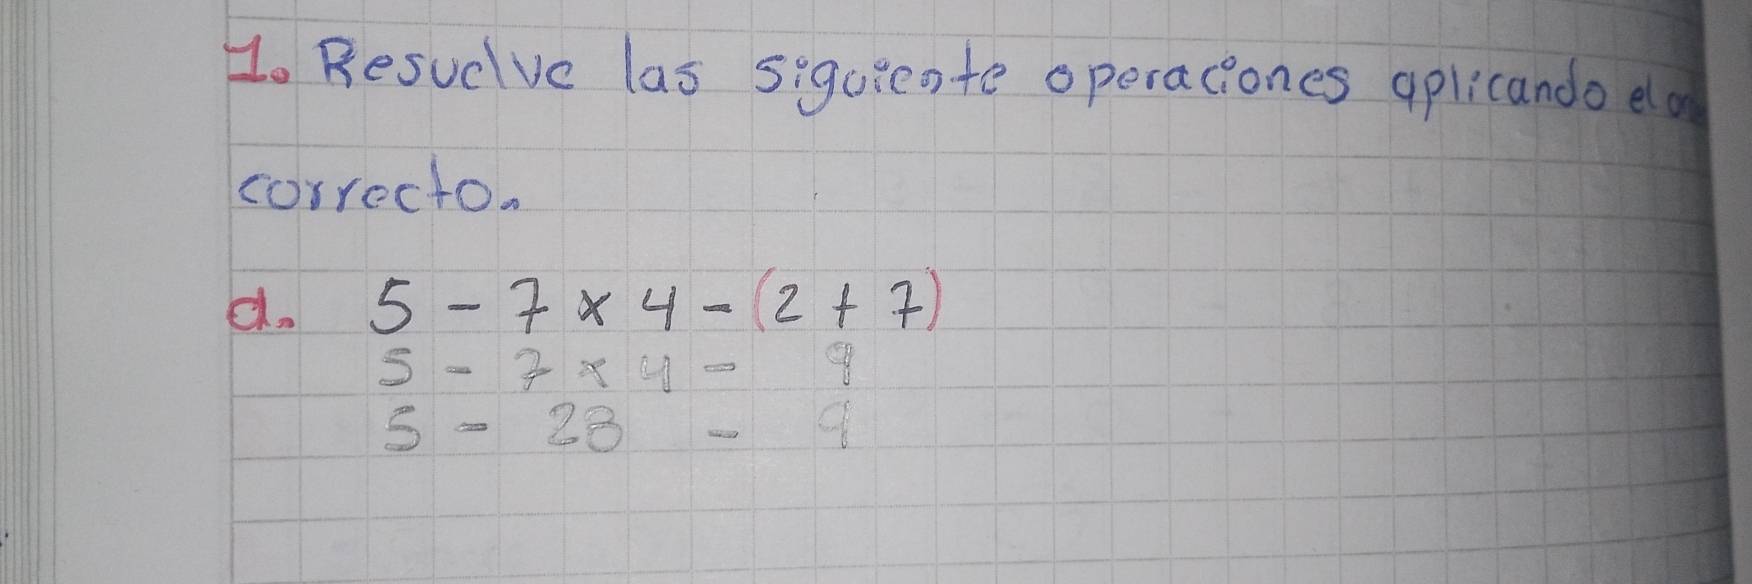 1. Resuelve las siguiente operaciones aplicando el
correcto.
d. 5 - 7 x 4 - (2 + 7)
5 - 7 x 4 - 9
5 - 28 - 9